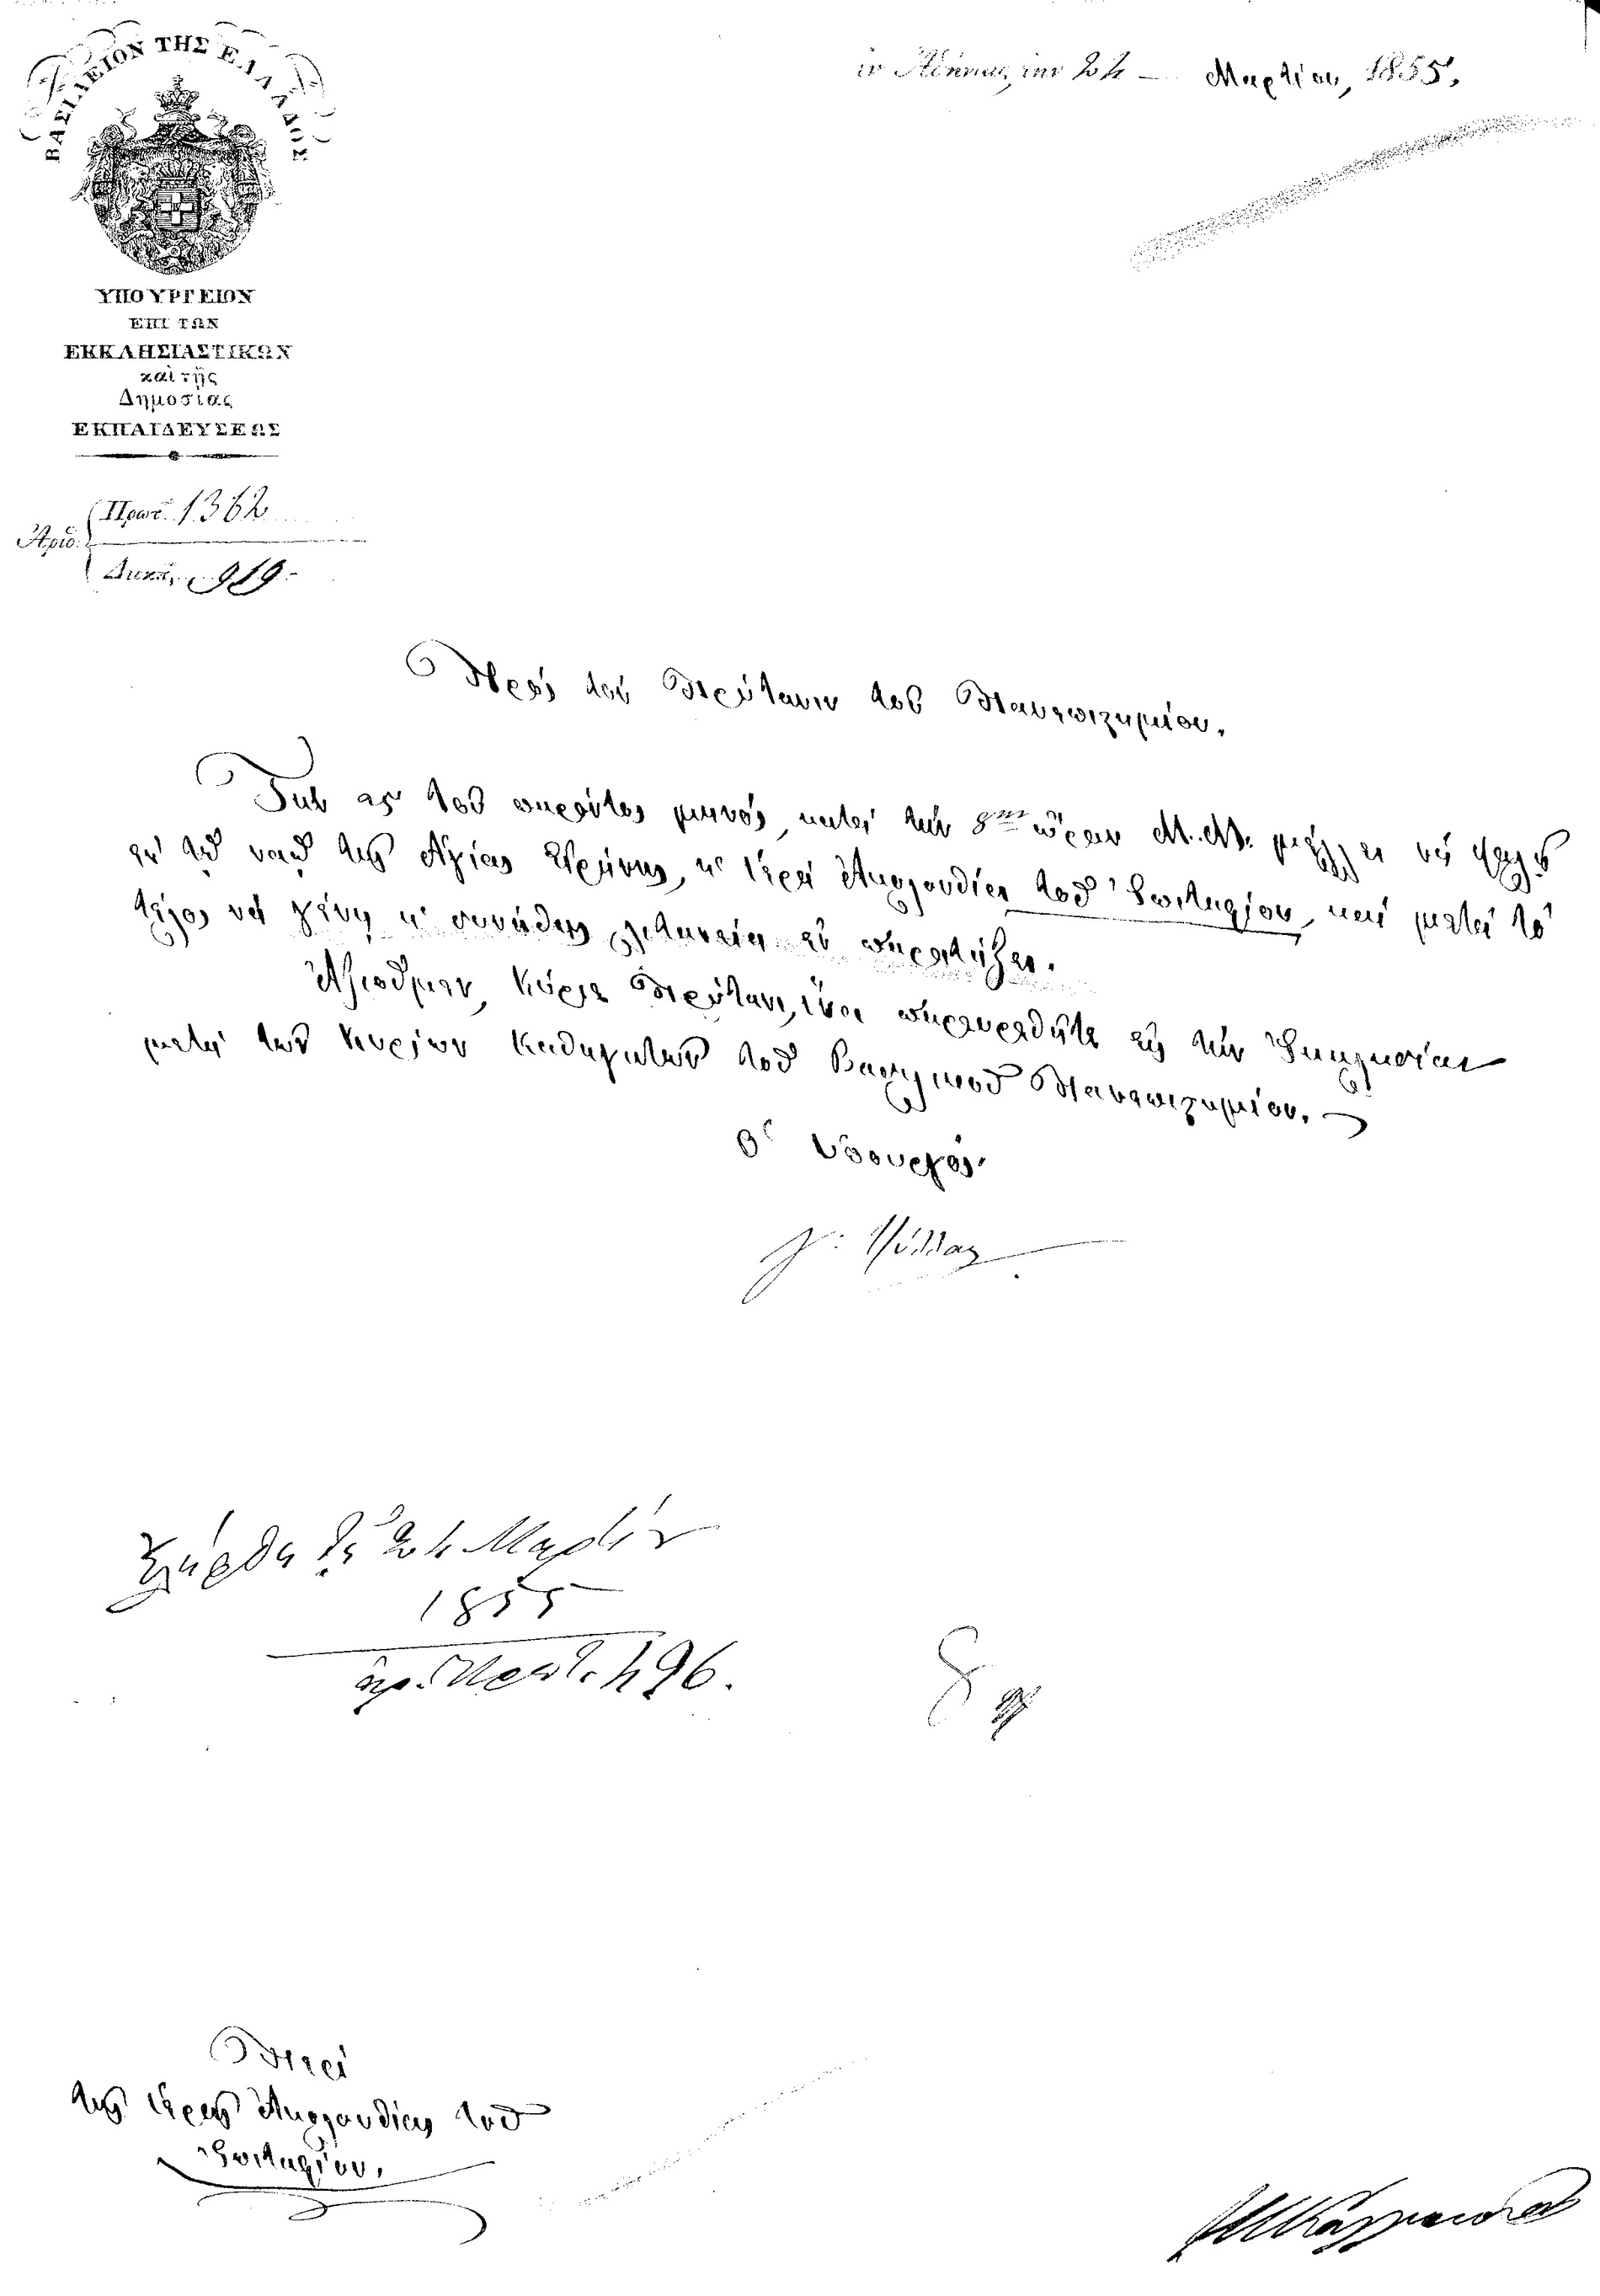 ΒΑΣΙΛΕΙΟΝ ΤΗΣ ΕΛΛΑΔΟΣ
ἐν Ἀθήναις, τὴν 24 Μαρτίου, 1855.
ΥΠΟΥΡΓΕΙΟΝ
ΕΠΙ ΤΩΝ
ΕΚΚΛΗΣΙΑΣΤΙΚΩΝ
καὶ τῆς
Δημοσίας
ΕΚΠΑΙΔΕΥΣΕΩΣ
Πρωτ. 1362
Ἀριθ.
Διεκπ. 919
Πρὸς τὸν Πρύτανιν τοῦ Πανεπιστημίου.
Τὴν τοῦ παρόντος μηνός, κατὰ τὴν 8ην ὥραν Μ.Μ. μέλλει νὰ ψαλῇ
ἐν τῷ ναῷ τῆς Ἁγίας Εἰρήνης, ἡ ἱερὰ Ἀκολουθία τοῦ Ἐπιταφίου, καὶ μετὰ τὸ
τέλος νὰ γίνῃ ἡ συνήθης λιτανεία ἐν παρατάξει.
Ἀξιοῦμεν, Κύριε Πρύτανι, ἵνα παρευρεθῆτε εἰς τὴν Ἐκκλησίαν
μετὰ τῶν Κυρίων Καθηγητῶν τοῦ Βασιλικοῦ Πανεπιστημίου.
Ὁ Ὑπουργός
Γ. Ψύλλας
Ἐλήφθη τῇ 24 Μαρτίου
1855
ἀρ. Πρωτ. 496.
Περὶ
τῆς ἱερᾶς Ἀκολουθίας τοῦ
Ἐπιταφίου.